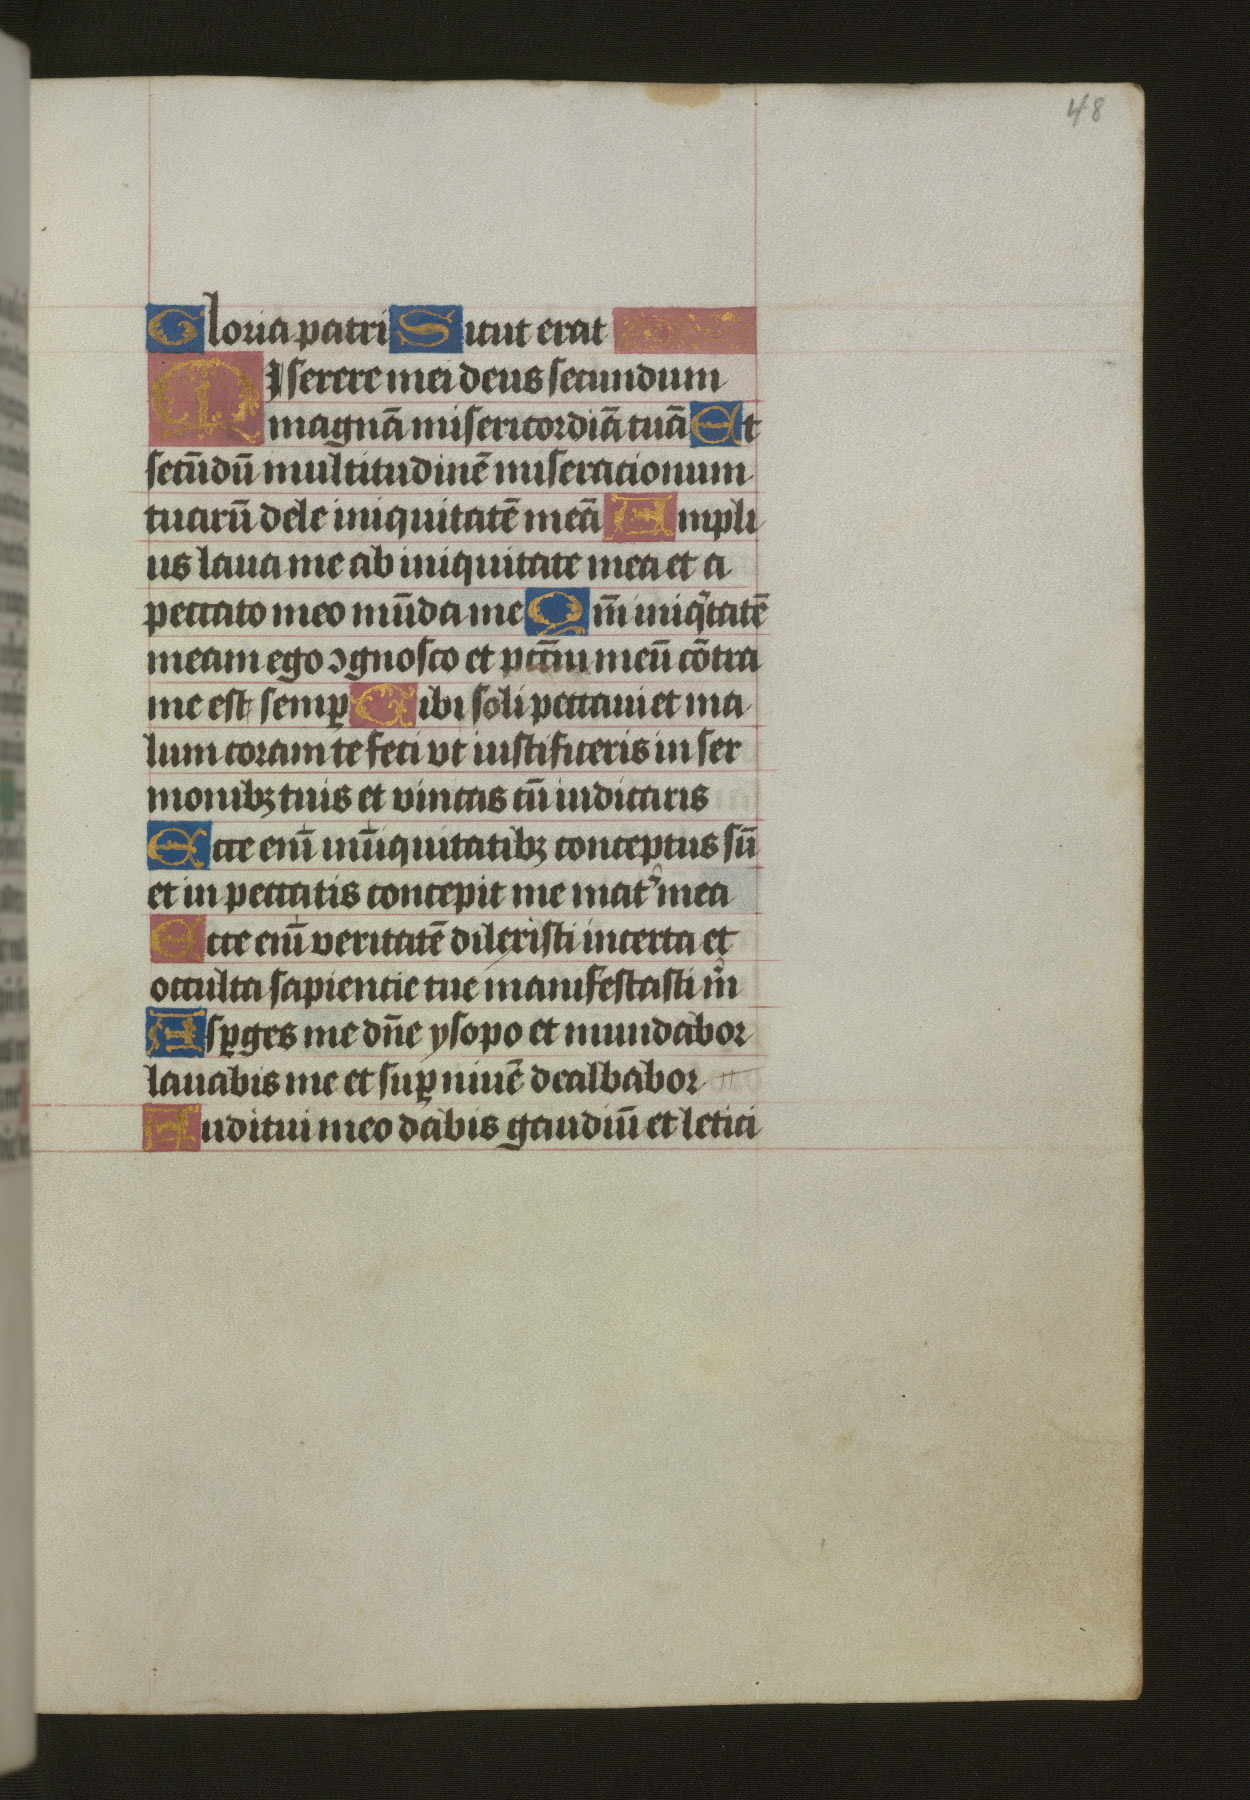 48
Gloria patri Sicut erat
MIserere mei deus secundum
magnā misericordiā tuā Et
secūdū multitudinē miseracionum
tuarū dele iniquitatē meā Ampli
us laua me ab iniquitate mea et a
peccato meo mūda me Qm̄ iniqͥtatē
meam ego ɔgnosco et pctm̄ meū cōtra
me est semꝑ Tibi soli peccaui et ma
lum coram te feci vt iustificeris in ser
monibꝫ tuis et vincas cū iudicaris
Ecce enī in iniquitatibꝫ conceptus sū
et in peccatis concepit me mat᷑ mea
Ecce enī veritatē dilexisti incerta et
occulta sapientie tue manifestasti m̄
Asꝑges me dn̄e ysopo et mundabor
lauabis me et suꝑ niuē dealbabor
Auditui meo dabis gaudiū et letici